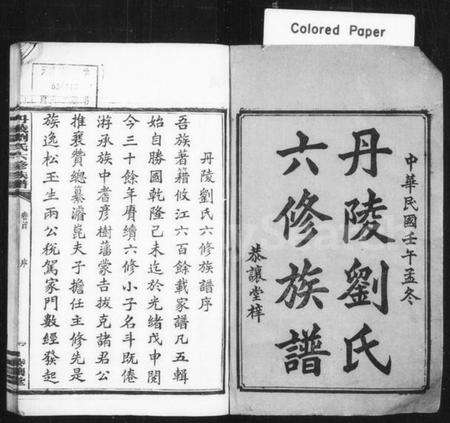 Colored Paper
中華民國壬午孟冬
丹陵劉氏
六修族譜
恭讓堂梓
丹陵劉氏六修族譜序
吾族著籍攸江六百餘載家譜凡五輯
始自勝國乾隆己未迄於光緒戊申閱
今三十餘年賡續六修小子名斗既倦
游承族中耆彥樹藩蒙吉拔克諸君公
推襄費總纂濬崑夫子擔任主修先是
族逸松玉生兩公稅駕家門數經發起
丹陵劉氏六修族譜
卷首
序